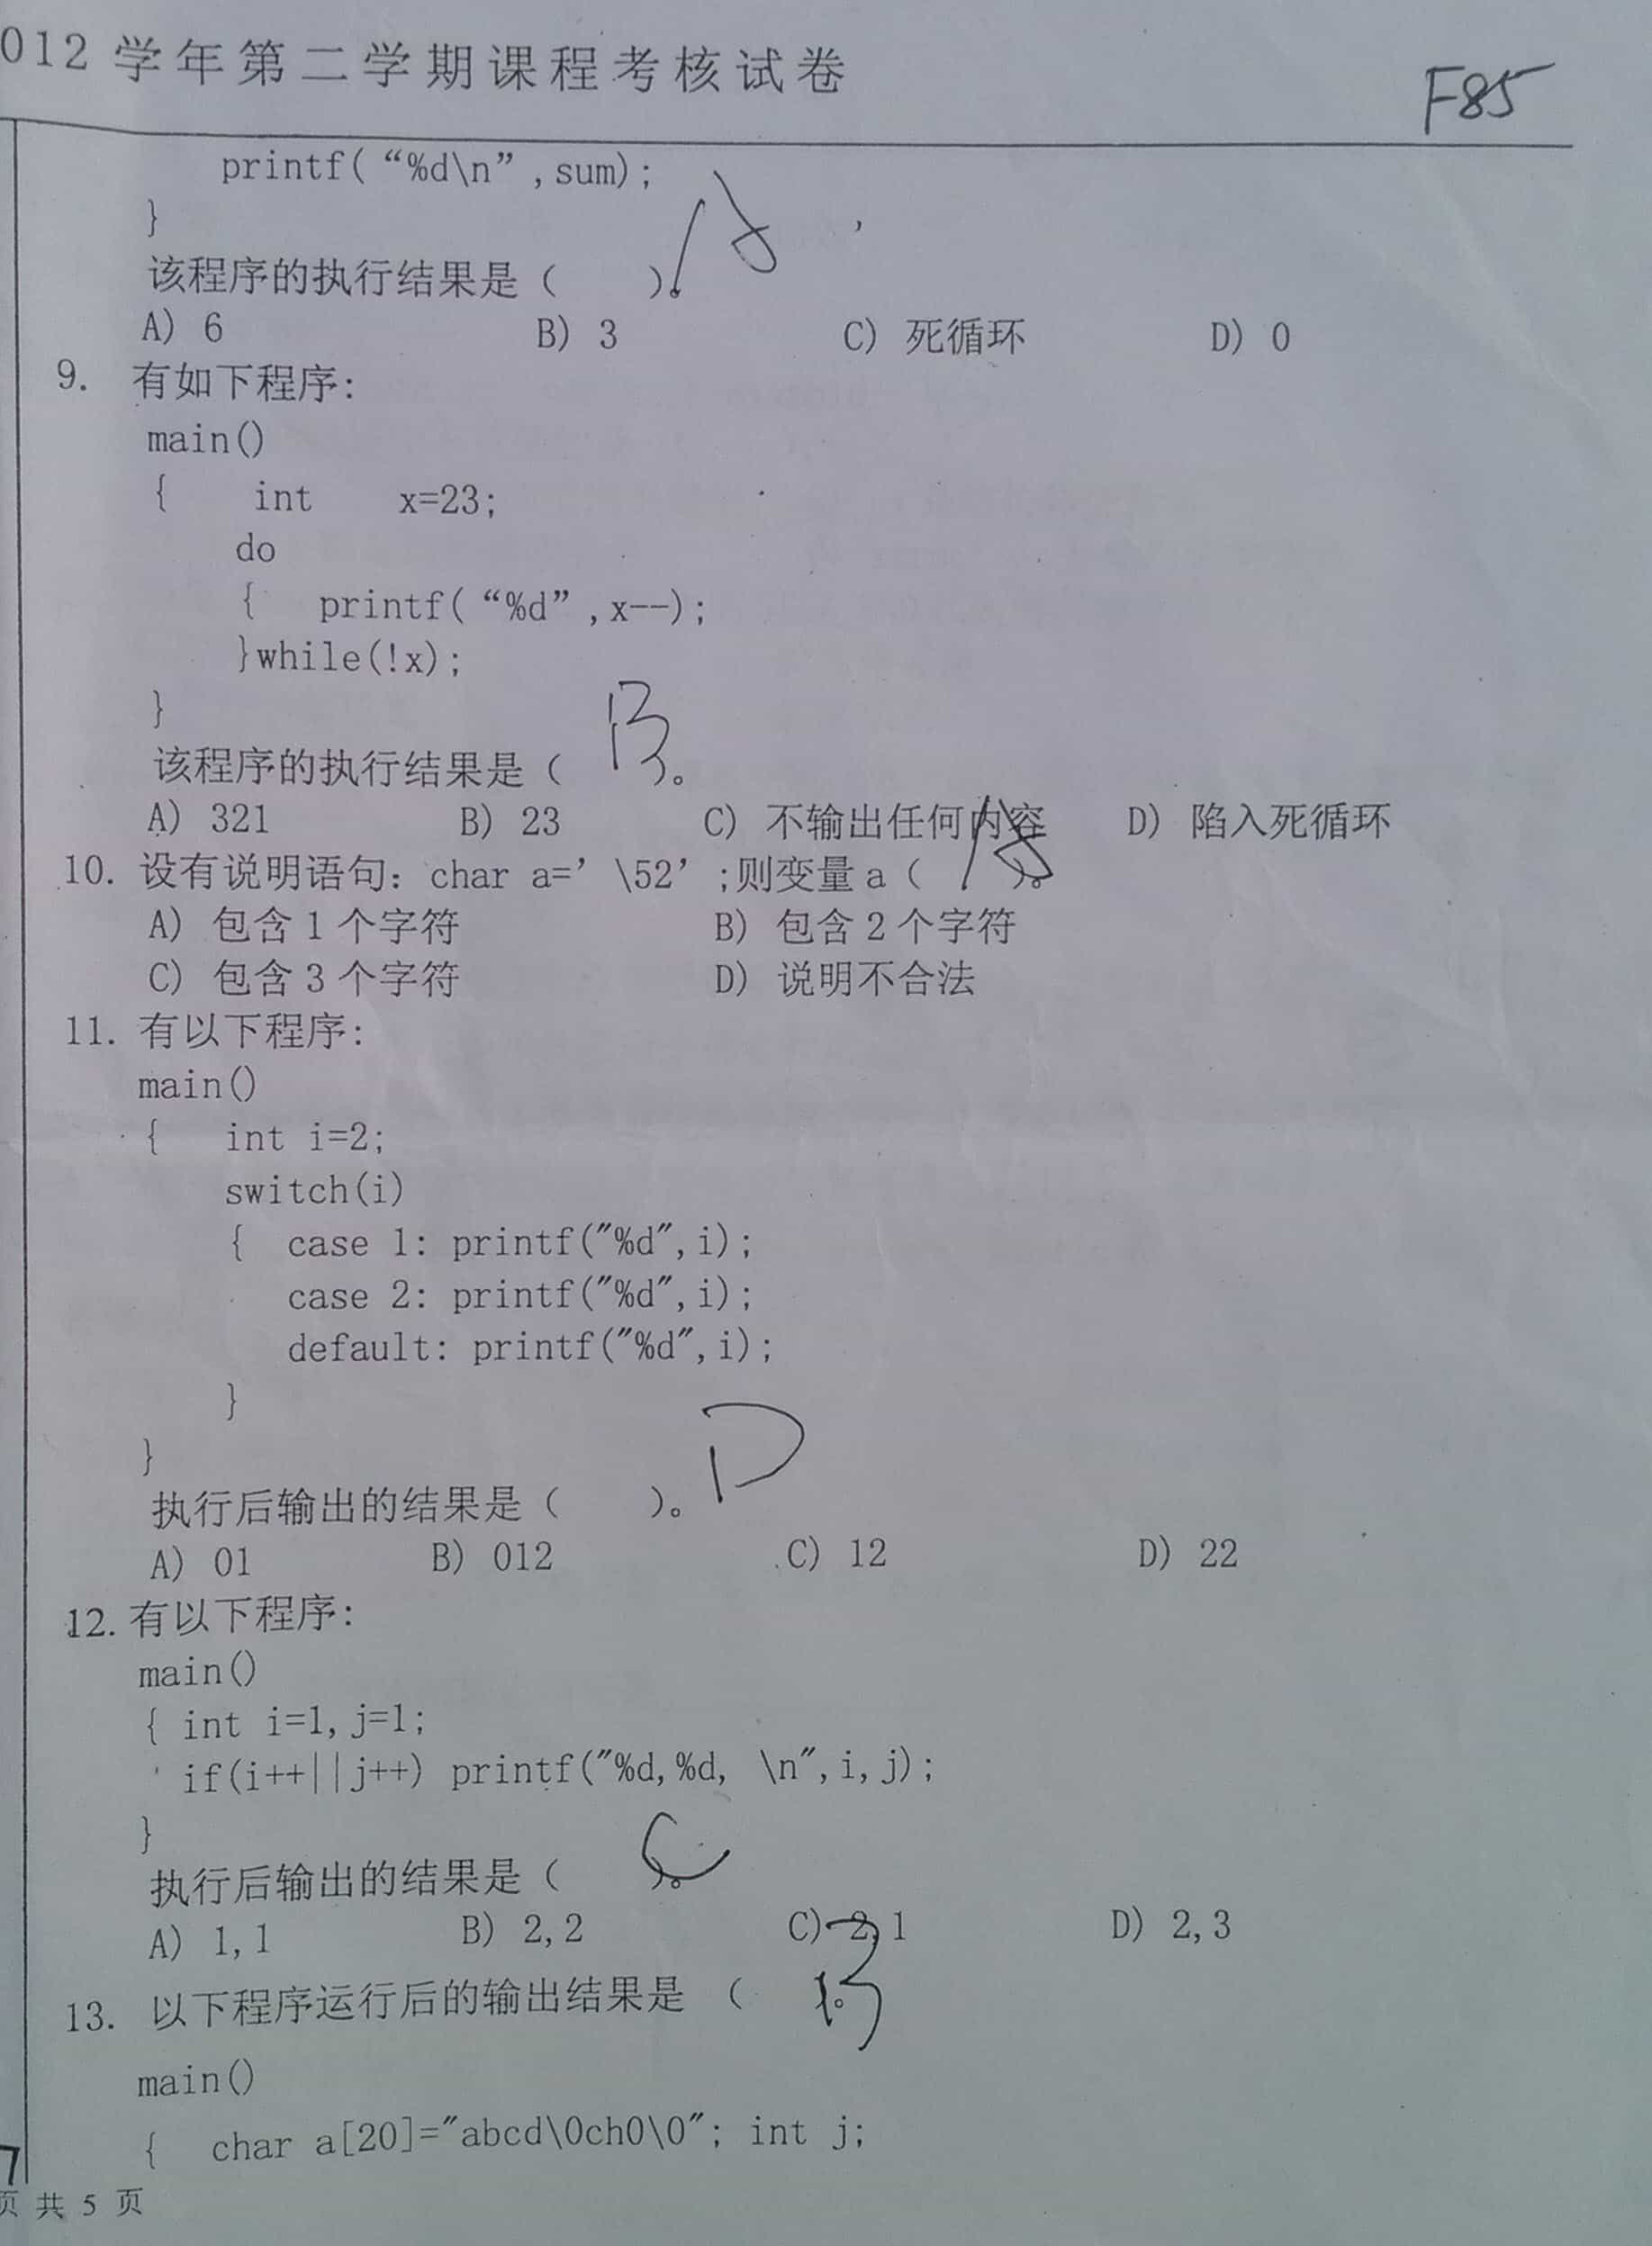 012学年第二学期课程考核试卷
F85
printf(“%d\n”,sum);
}
该程序的执行结果是（ ）。A
A) 6 B) 3 C) 死循环 D) 0
9. 有如下程序:
main()
{ int x=23;
do
{ printf(“%d”,x--);
}while(!x);
}
该程序的执行结果是（ B 。
A) 321 B) 23 C) 不输出任何内容 D) 陷入死循环
10. 设有说明语句: char a=’\52’;则变量a（ A ）。
A) 包含1个字符 B) 包含2个字符
C) 包含3个字符 D) 说明不合法
11. 有以下程序:
main()
{ int i=2;
switch(i)
{ case 1: printf("%d",i);
case 2: printf("%d",i);
default: printf("%d",i);
}
}
执行后输出的结果是（ ）。D
A) 01 B) 012 C) 12 D) 22
12. 有以下程序:
main()
{ int i=1,j=1;
if(i++||j++) printf("%d,%d, \n",i,j);
}
执行后输出的结果是（ C ）。
A) 1,1 B) 2,2 C) 2,1 D) 2,3
13. 以下程序运行后的输出结果是 （ B ）。
main()
{ char a[20]="abcd\0ch0\0"; int j;
页 共 5 页